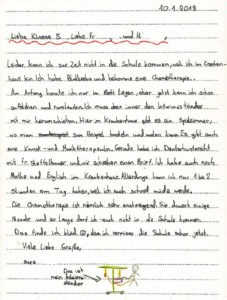 10.1.2019
Liebe Klasse 5. Liebe Fr. und H.
Leider kann ich zur Zeit nicht in die Schule kommen, weil ich im Kranken-
haus bin. Ich habe Blutkrebs und bekomme eine Chemotherapie.
Am Anfang konnte ich nur im Bett liegen, aber jetzt kann ich schon
aufstehen und rumlaufen. Ich muss aber immer den Infusionsständer
mit mir herumschieben. Hier im Krankenhaus gibt es ein Spielzimmer,
wo man zum Beispiel basteln und malen kann. Es gibt auch
eine Kunst- und Musiktherapeutin. Gerade habe ich Deutschunterricht
mit Fr. und wir schreiben einen Brief. Ich habe auch noch
Mathe und English im Krankenhaus. Allerdings kann ich nur 1 bis 2
Stunden am Tag haben, weil ich auch schnell müde werde.
Die Chemotherapie ist nämlich sehr anstrengend. Sie dauert einige
Monate und so lange darf ich auch nicht in die Schule kommen.
Das finde ich blöd, denn ich vermisse die Schule schon jetzt.
Viele liebe Grüße,
eure
Das ist
mein Infusions-
ständer